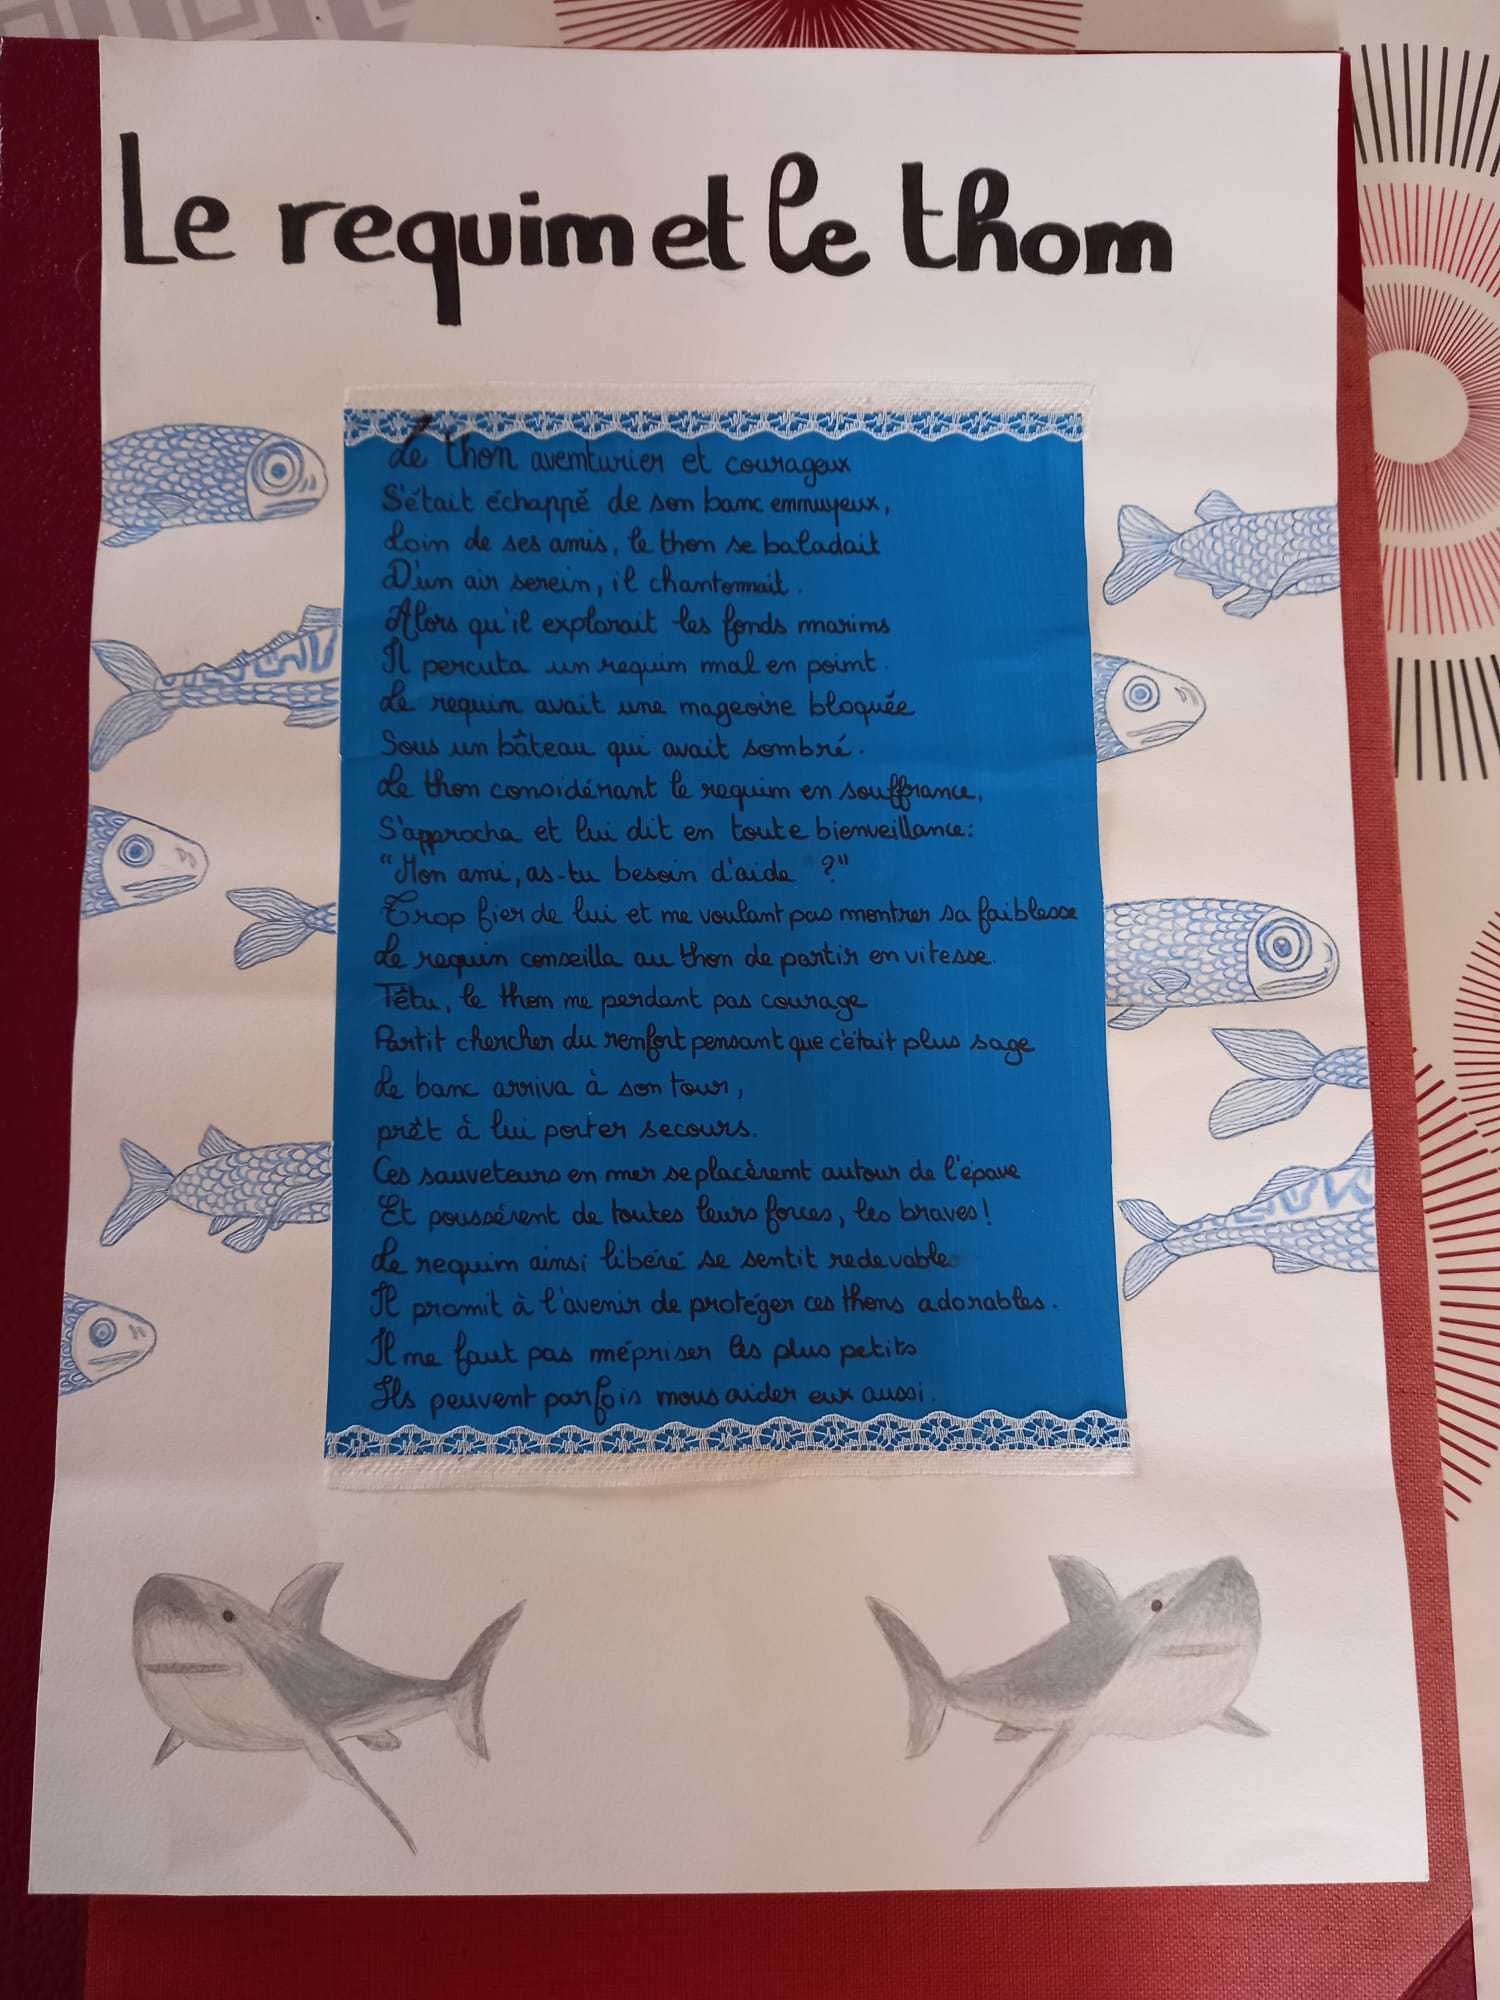 Le requin et le thon
Le thon aventurier et courageux
S'était échappé de son banc ennuyeux,
Loin de ses amis, le thon se baladait
D'un air serein, il chantonnait.
Alors qu'il explorait les fonds marins
Il percuta un requin mal en point.
Le requin avait une nageoire bloquée
Sous un bâteau qui avait sombré.
Le thon considérant le requin en souffrance,
S'approcha et lui dit en toute bienveillance:
"Mon ami, as-tu besoin d'aide ?"
Trop fier de lui et ne voulant pas montrer sa faiblesse
Le requin conseilla au thon de partir en vitesse.
Têtu, le thon ne perdant pas courage
Partit chercher du renfort pensant que c'était plus sage
Le banc arriva à son tour,
prêt à lui porter secours.
Ces sauveteurs en mer se placèrent autour de l'épave
Et poussèrent de toutes leurs forces, les braves!
Le requin ainsi libéré se sentit redevable
Il promit à l'avenir de protéger ces thons adorables.
Il ne faut pas mépriser les plus petits
Ils peuvent parfois nous aider eux aussi.